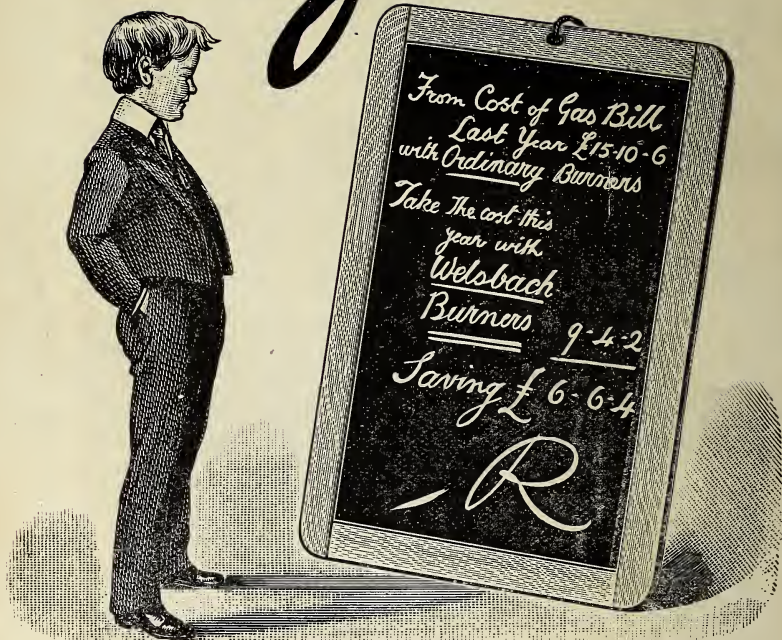 From Cost of Gas Bill
Last Year £15-10-6
with Ordinary Burners
Take The cost this
year with
Welsbach
Burners 9-4-2
Saving £ 6-6-4
R